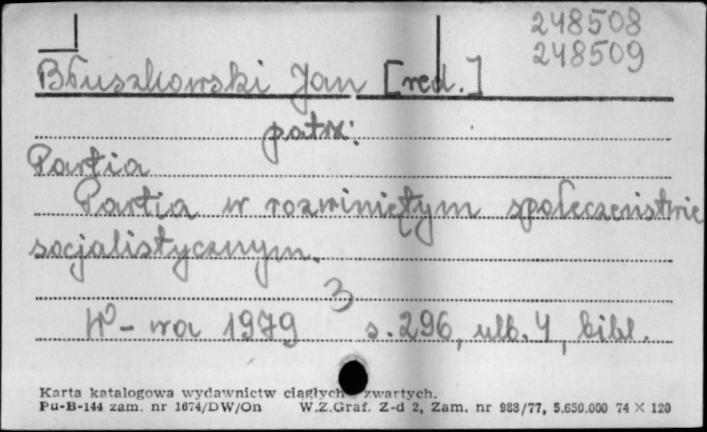 248508
248509
Błuszkowski Jan [red.]
patrz:
Partia
Partia w rozwiniętym społeczeństwie
socjalistycznym.
3
W-wa 1979 s. 296, ulb. 4, bibl.
Karta katalogowa wydawnictw ciągłych zwartych.
Pu-B-144 zam. nr 1674/DW/On W.Z.Graf. Z-d 2, Zam. nr 988/77, 5.650.000 74 × 120